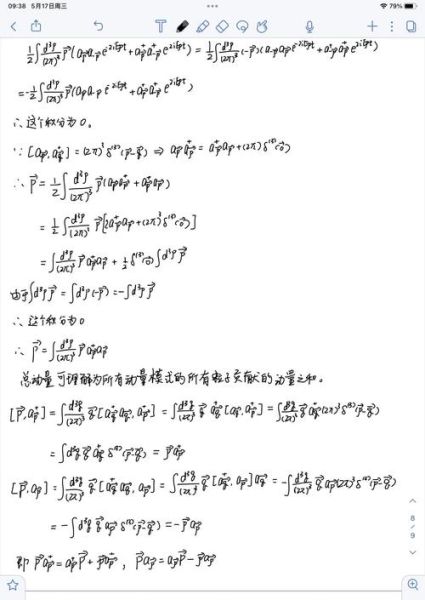 09:38 5月17日周三
79%
1/2∫d³p/(2π)³ p⃗(aₚa₋ₚe^{-2iEₚt}+a⁺ₚa⁺₋ₚe^{2iEₚt}) = 1/2∫d³p/(2π)³(-p⃗)(a₋ₚaₚe^{-2iEₚt}+a⁺₋ₚa⁺ₚe^{2iEₚt})
=-1/2∫d³p/(2π)³ p⃗(aₚa₋ₚe^{-2iEₚt}+a⁺ₚa⁺₋ₚe^{2iEₚt})
∴这个积分为0。
∵[aₚ,a⁺_q]=(2π)³δ⁽³⁾(p⃗-q⃗) ⇒ aₚa⁺ₚ=a⁺ₚaₚ+(2π)³δ⁽³⁾(0⃗)
∴P⃗=1/2∫d³p/(2π)³ p⃗(aₚa⁺ₚ+a⁺ₚaₚ)
=1/2∫d³p/(2π)³ p⃗[2a⁺ₚaₚ+(2π)³δ⁽³⁾(0⃗)]
=∫d³p/(2π)³ p⃗a⁺ₚaₚ+1/2δ⁽³⁾(0⃗)∫d³p p⃗
由于∫d³p p⃗=∫d³p(-p⃗)=-∫d³p p⃗
∴这个积分为0
∴P⃗=∫d³p/(2π)³ p⃗a⁺ₚaₚ
总动量可理解为所有动量模式的所有粒子贡献的动量之和。
[P⃗,a⁺ₚ]=∫d³q/(2π)³ q⃗[a⁺_qa_q,a⁺ₚ]=∫d³q/(2π)³ q⃗a⁺_q[a_q,a⁺ₚ]=∫d³q/(2π)³ q⃗a⁺_q(2π)³δ⁽³⁾(p⃗-q⃗)
=∫d³q q⃗a⁺_qδ⁽³⁾(p⃗-q⃗)=p⃗a⁺ₚ
[P⃗,aₚ]=∫d³q/(2π)³ q⃗[a⁺_qa_q,aₚ]=∫d³q/(2π)³ q⃗[a⁺_q,aₚ]a_q=-∫d³q/(2π)³ q⃗a_q(2π)³δ⁽³⁾(p⃗-q⃗)
=-∫d³q q⃗a_qδ⁽³⁾(p⃗-q⃗)=-p⃗aₚ
即P⃗a⁺ₚ=a⁺ₚP⃗+p⃗a⁺ₚ, P⃗aₚ=aₚP⃗-p⃗aₚ
8
9